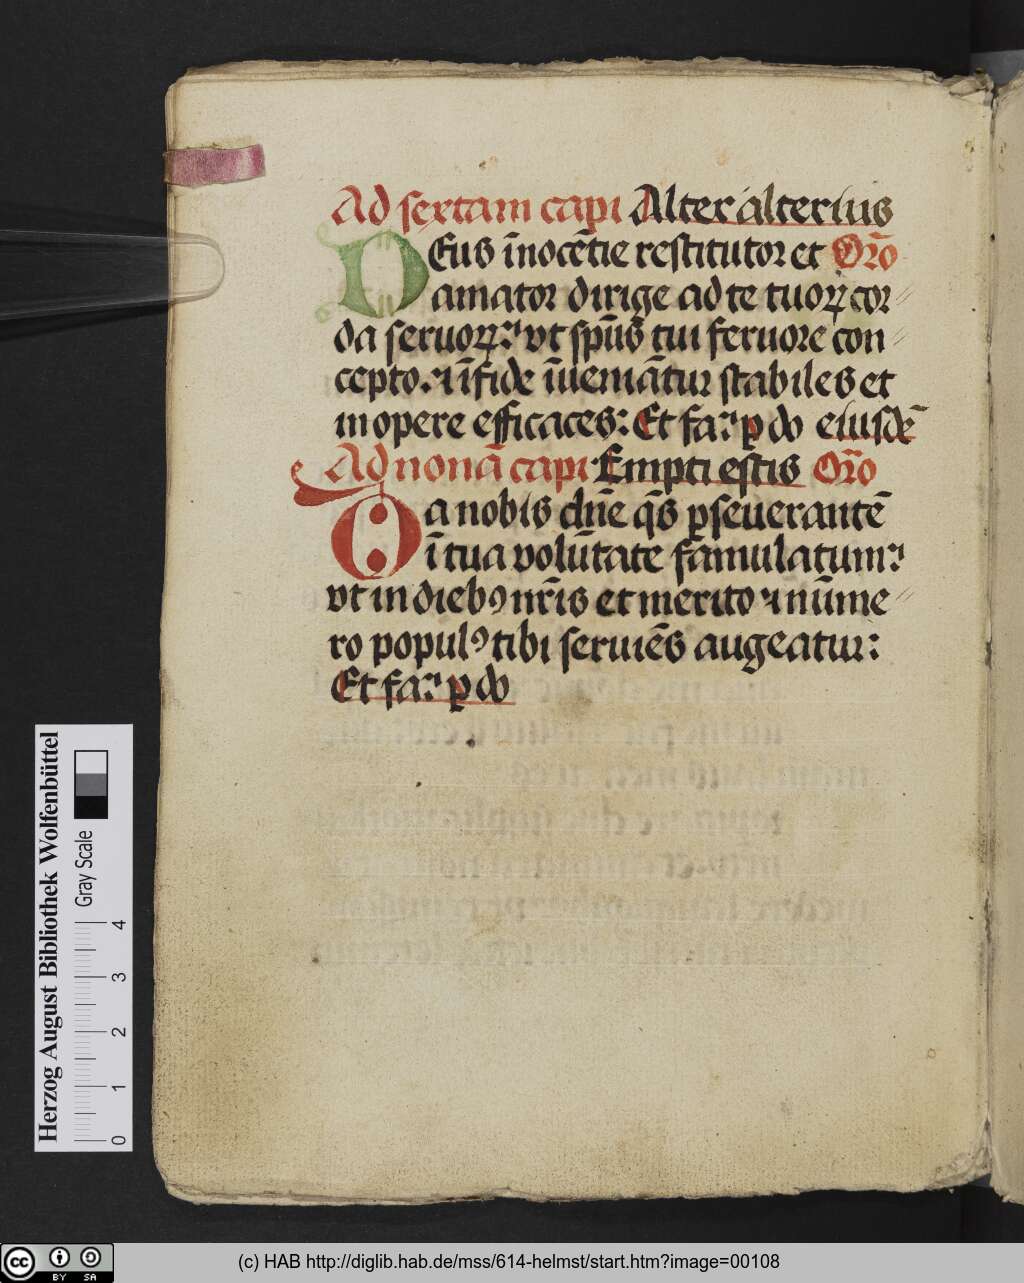 Ad sextam capi Alter alterius
Deus īnocētie restitutor et Orō
amator dirige ad te tuoꝝ cor
da seruoꝝ: vt spūs tui feruore con
cepto. ⁊ ī fide īueniātur stabiles et
in opere efficaces: Et fa: ꝑ do eiusdē
Ad nonā capi Empti estis Orō
Da nobis dn̄e qs̄ ꝑseuerantē
ī tua volūtate famulatum:
vt in diebꝰ nr̄is et merito ⁊ nūme
ro populꝰ tibi seruiēs augeatur:
Et fa: ꝑ do
Herzog August Bibliothek Wolfenbüttel
Gray Scale
0 1 2 3 4
cc BY SA
(c) HAB http://diglib.hab.de/mss/614-helmst/start.htm?image=00108